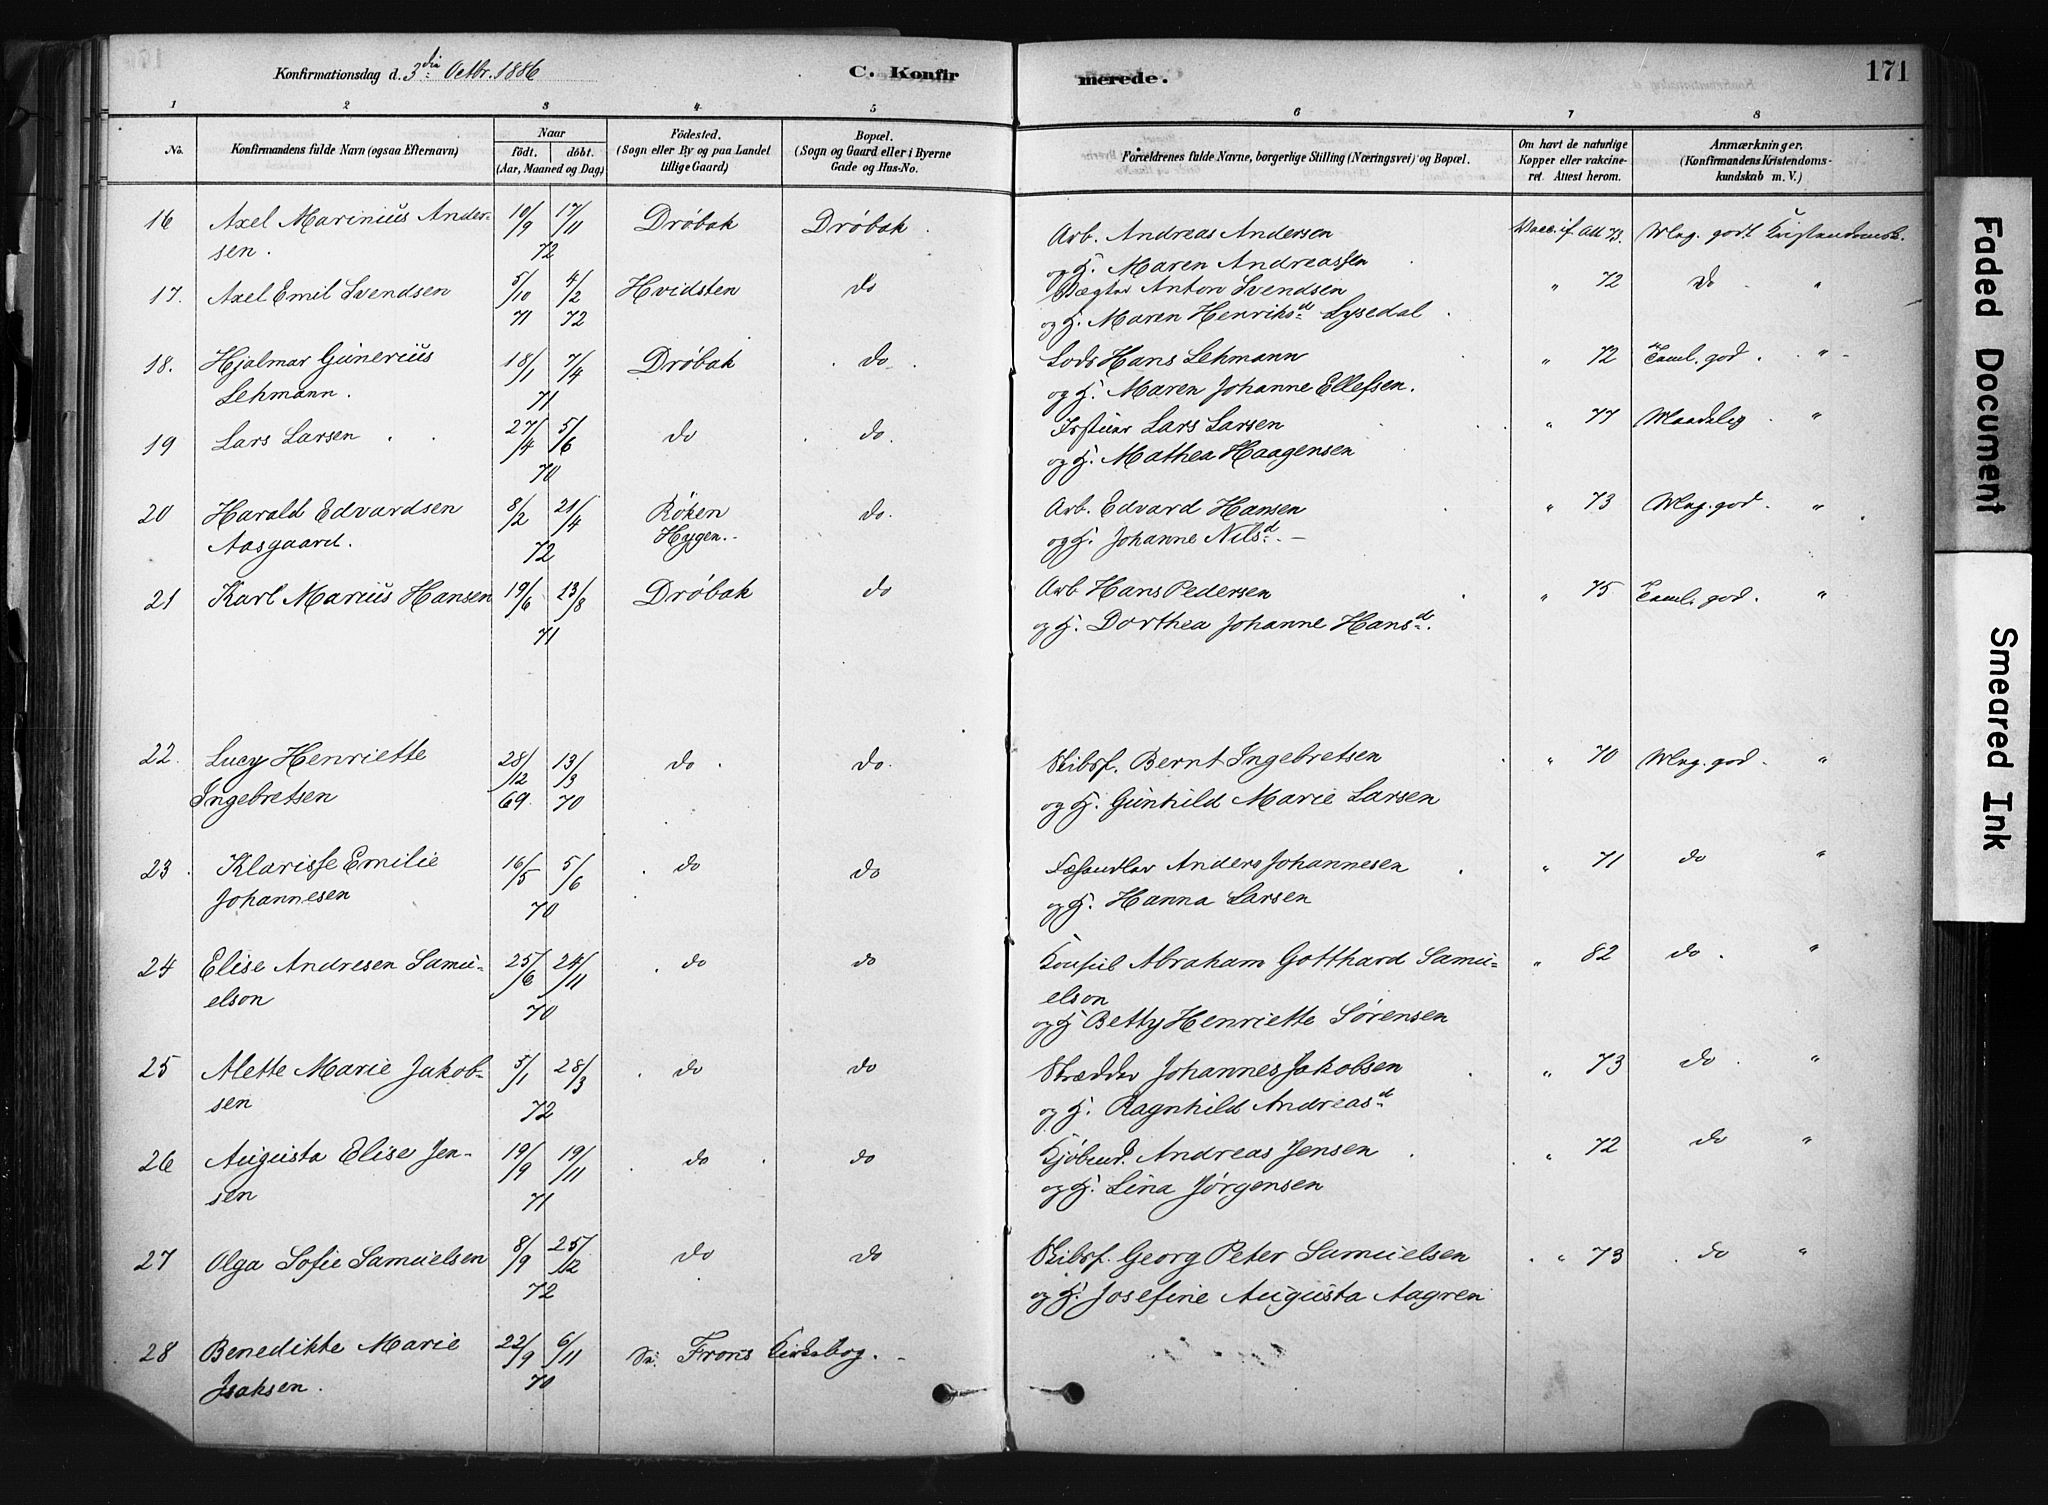 Konfirmationsdag d. 3die Octbr. 1886
C. Konfirmerede.
171
1 2 3 4 5 6 7 8
No.
Konfirmandens fulde Navn (ogsaa Efternavn)
Naar
født. døbt.
(Aar, Maaned og Dag)
Födested.
(Sogn eller By og paa Landet
tillige Gaard)
Bopæl.
(Sogn og Gaard eller i Byerne
Gade og Hus-No.
Forældrenes fulde Navne, borgerlige Stilling (Næringsvei) og Bopæl.
Om havt de naturlige
Kopper eller vakcineret. Attest herom.
Anmærkninger.
(Konfirmandens Kristendomskundskab m. V.)
16 Axel Marinius Ander- 10/9 17/11 Drøbak Drøbak. Arb. Andreas Andersen Vacc. if. Att 73. Mlg. godt Kristendomsk.
sen. 72 og H. Maren Andreassen
17. Axel Emil Svendsen 5/10 4/2 Hvidsten do Vægter Anton Svendsen " 72 Do "
71 72 og H. Maren Henriksd. Lysedal.
18. Hjalmar Günerius 18/1 7/4 Drøbak do. Lods Hans Lehmann " 72 Taml. god. "
Lehmann. 71 og H. Maren Johanne Ellefsen.
19 Lars Larsen 27/4 5/6 do do. Lars Larsen " 77 Maadelig "
70 og H. Mathea Haagensen
20 Harald Edvardsen 8/2 21/4 Røken do. Arb. Edvard Hansen " 73 Mlg. god. "
Aasgaard. 72 Hygen. og H. Johanne Nilsd.
21 Karl Marius Hansen 19/6 13/8 Drøbak do Arb Hans Pedersen " 75 Taml. god. "
71 og H. Dorthea Johanne Hansd.
22. Lucy Henriette 28/12 13/3 do. do. Skibsf. Bernt Ingebretsen " 70 Mlg. god. "
Ingebretsen 69. 70 og H. Günhild Marie Larsen
23. Klarisse Emilie 16/5 5/6 do do Anders Johannesen " 71 do "
Johannesen 70 og H. Hanna Larsen
24 Elise Andresen Samu- 25/6 24/11 do do Konsul Abraham Gotthard Samu- " 82 do. "
elson 70 elson
og H Betty Henriette Sørensen
25 Alette Marie Jakob- 5/1 28/3 do do Skrædder Johannes Jakobsen " 73 do. "
sen 72 og H. Ragnhild Andreasd.
26 Augusta Elise Jen- 19/9 19/11 do do Kjøbmd. Andreas Jensen " 72 do "
sen 71 og H. Lina Jørgensen
27 Olga Sofie Samuelsen 8/9 25/12 do do Skibsf. Georg Peter Samuelsen " 73 do "
72 og H. Josefine Augusta Aagren
28 Benedikte Marie 22/9 6/11 Se. Frons Kirkebog.
Isaksen. 70
Faded Document
Smeared Ink